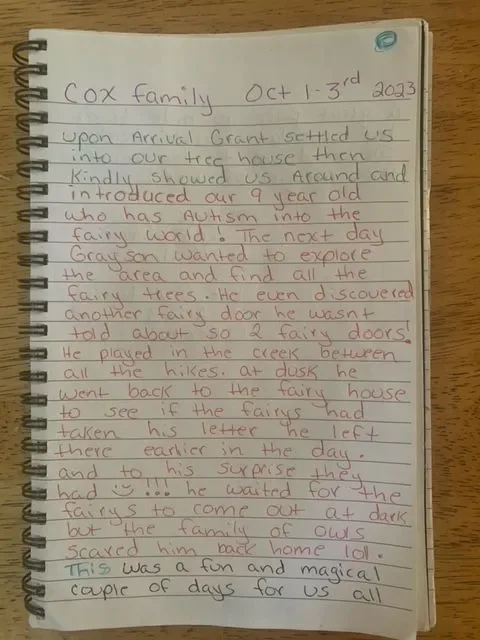 Cox family Oct 1-3rd 2023
upon Arrival Grant settled us
into our tree house then
Kindly showed us Around and
introduced our 9 year old
who has AUtism into the
fairy world! The next day
Grayson wanted to explore
the area and find all the
fairy trees. He even discovered
another fairy door he wasnt
told about so 2 fairy doors!
He played in the creek between
all the hikes. at dusk he
went back to the fairy house
to see if the fairys had
taken his letter he left
there earlier in the day.
and to his surprise they
had !!! he waited for the
fairys to come out at dark
but the family of owls
scared him back home lol.
This was a fun and magical
couple of days for us all